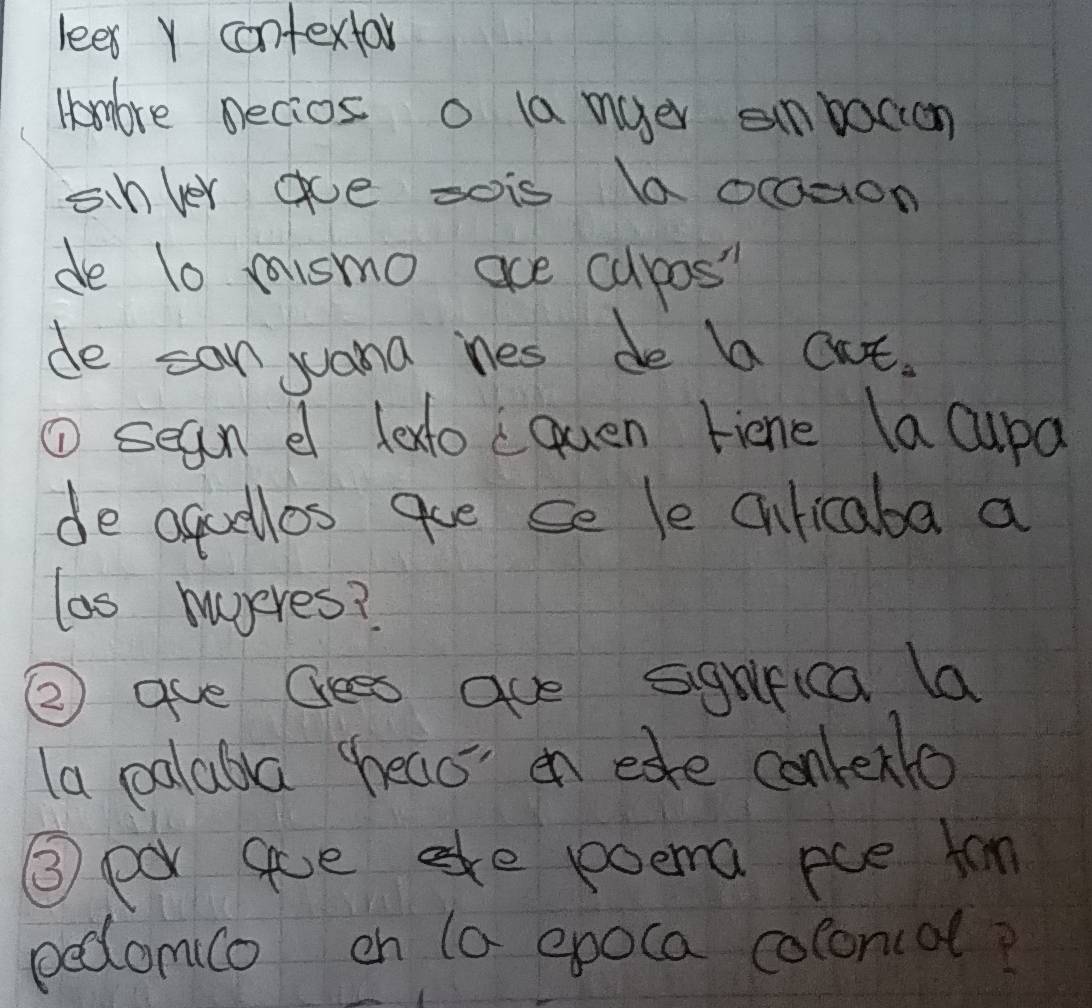 leer y contextar
Hombre necios o la myer sin bocion
sin ver que sois la ocasion
de lo mismo que culpas"
de san juana ines de la cruz.
① segun el texto ¿quen tiene la cupa
de aquellos que se le criticaba a
las mujeres?
② que crees que significa la
la palabra "necio" en este contexto
③ por que este poema fue tan
pedomico en la epoca colonial?